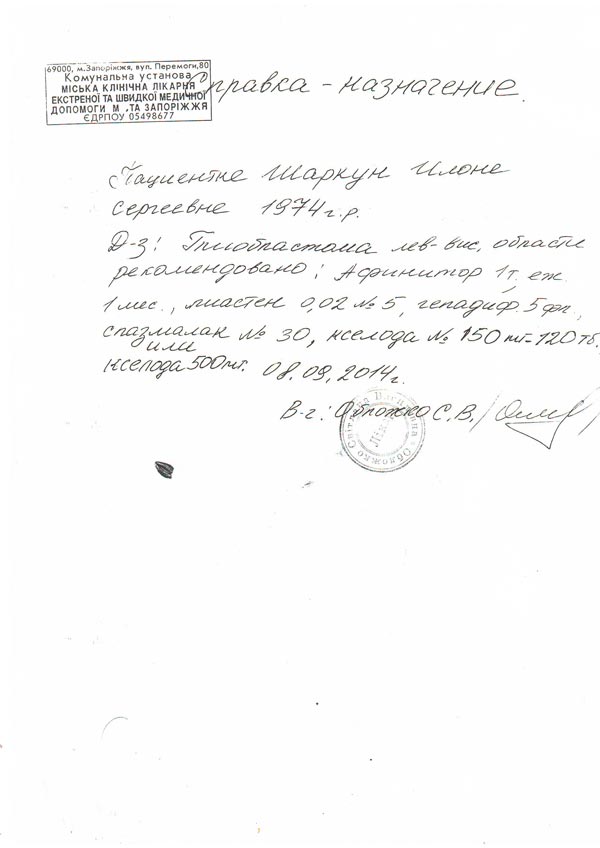 69000, м.Запоріжжя, вул. Перемоги,80
Комунальна установа
МІСЬКА КЛІНІЧНА ЛІКАРНЯ
ЕКСТРЕНОЇ ТА ШВИДКОЇ МЕДИЧНОЇ
ДОПОМОГИ М ,ТА ЗАПОРІЖЖЯ
ЄДРПОУ 05498677
Справка - назначение.
Пациентке Шаркун Илоне
Сергеевне 1974г.р.
Д-з: Глиобластома лев-вис. области
рекомендовано: Афинитор 1т. еж.
1 мес., миастен 0,02 № 5, гепадиф. 5 фл.,
спазмалак № 30, кселода № 150 мг-120 тб.,
или
кселода 500мг. 08.09.2014г.
В-г: Обложко С.В.